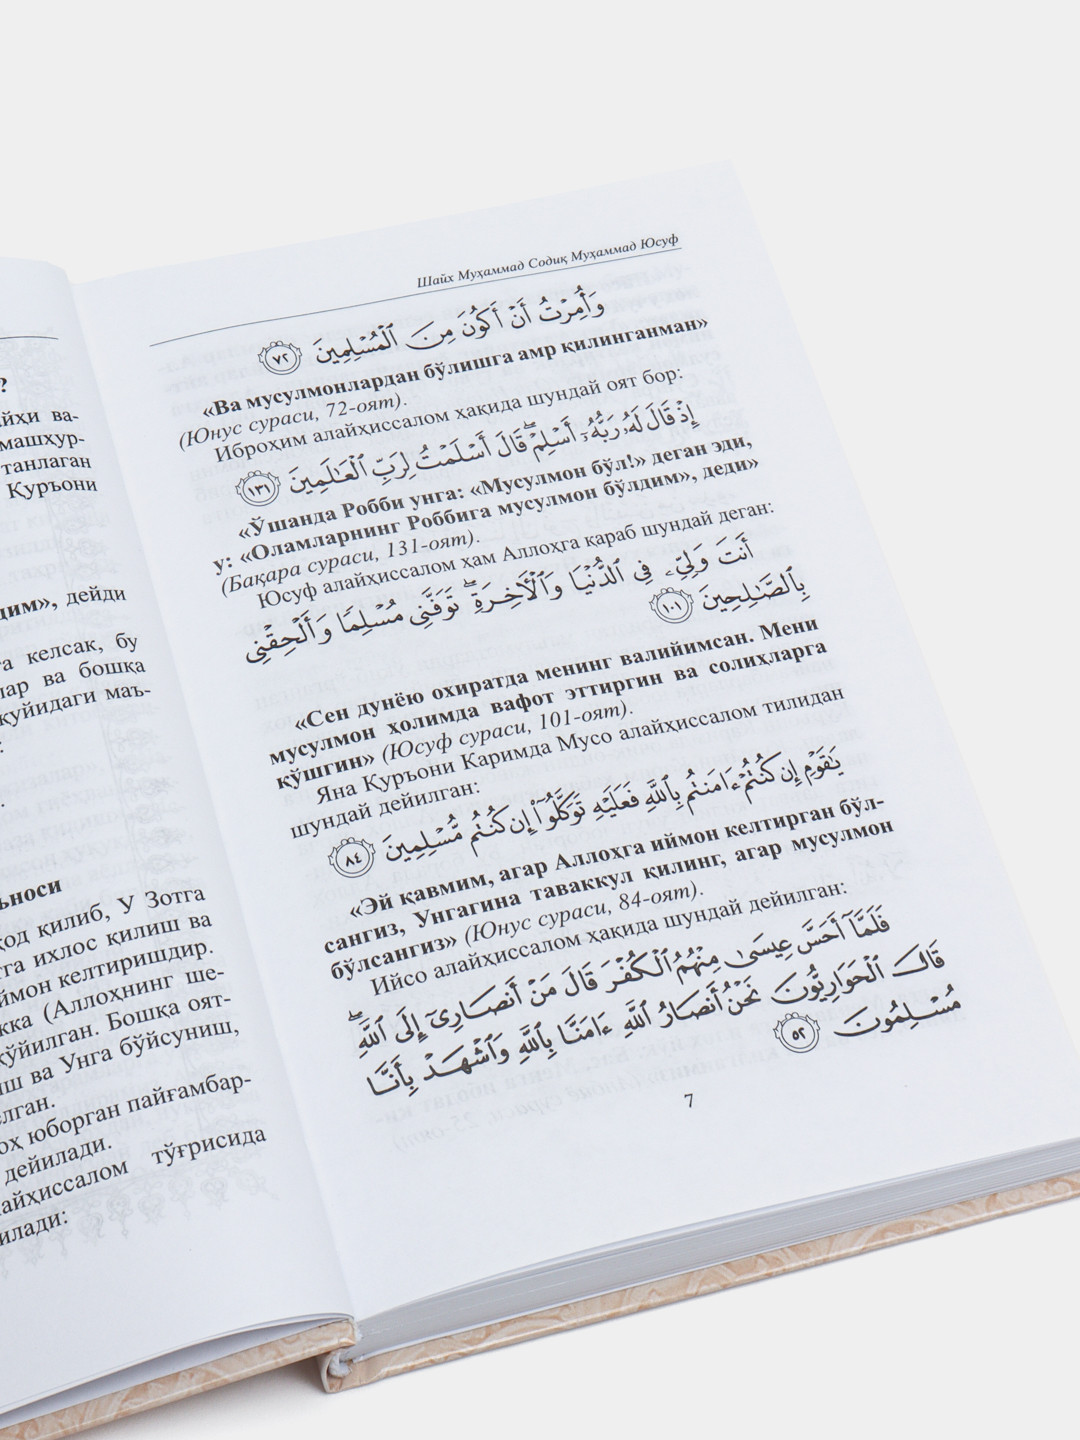 ?
айҳи ва-
машҳур-
танлаган
Қуръони
дим», дейди
а келсак, бу
лар ва бошқа
қуйидаги маъ-
:
.
ъноси
од қилиб, У Зотга
тга ихлос қилиш ва
ймон келтиришдир.
кка (Аллоҳнинг ше-
қўйилган. Бошқа оят-
иш ва Унга бўйсуниш,
елган.
оҳ юборган пайғамбар-
дейилади.
лайҳиссалом тўғрисида
илади:
Шайх Муҳаммад Содиқ Муҳаммад Юсуф
وَأُمِرْتُ أَنْ أَكُونَ مِنَ الْمُسْلِمِينَ ٧٢
«Ва мусулмонлардан бўлишга амр қилинганман»
(Юнус сураси, 72-оят).
Иброҳим алайҳиссалом ҳақида шундай оят бор:
إِذْ قَالَ لَهُ رَبُّهُ أَسْلِمْ قَالَ أَسْلَمْتُ لِرَبِّ الْعَالَمِينَ ١٣١
«Ўшанда Робби унга: «Мусулмон бўл!» деган эди,
у: «Оламларнинг Роббига мусулмон бўлдим», деди»
(Бақара сураси, 131-оят).
Юсуф алайҳиссалом ҳам Аллоҳга қараб шундай деган:
أَنتَ وَلِيِّۦ فِي الدُّنْيَا وَالْآخِرَةِ تَوَفَّنِي مُسْلِمًا وَأَلْحِقْنِي
بِالصَّالِحِينَ ١٠١
«Сен дунёю охиратда менинг валийимсан. Мени
мусулмон ҳолимда вафот эттиргин ва солиҳларга
қўшгин» (Юсуф сураси, 101-оят).
Яна Қуръони Каримда Мусо алайҳиссалом тилидан
шундай дейилган:
يَٰقَوْمِ إِن كُنتُمْ ءَامَنتُم بِاللَّهِ فَعَلَيْهِ تَوَكَّلُوٓا إِن كُنتُم مُّسْلِمِينَ ٨٤
«Эй қавмим, агар Аллоҳга иймон келтирган бўл-
сангиз, Унгагина таваккул қилинг, агар мусулмон
бўлсангиз» (Юнус сураси, 84-оят).
Ийсо алайҳиссалом ҳақида шундай дейилган:
فَلَمَّآ أَحَسَّ عِيسَىٰ مِنْهُمُ الْكُفْرَ قَالَ مَنْ أَنصَارِيٓ إِلَى اللَّهِ
قَالَ الْحَوَارِيُّونَ نَحْنُ أَنصَارُ اللَّهِ ءَامَنَّا بِاللَّهِ وَاشْهَدْ بِأَنَّا
مُسْلِمُونَ ٥٢
7